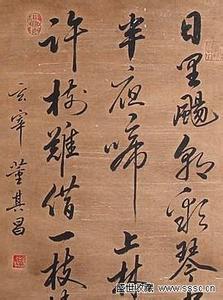 日里颺朝彩琴
半夜啼上林
許樹難借一枝
玄宰董其昌
盛世收藏
www.sssc.cn